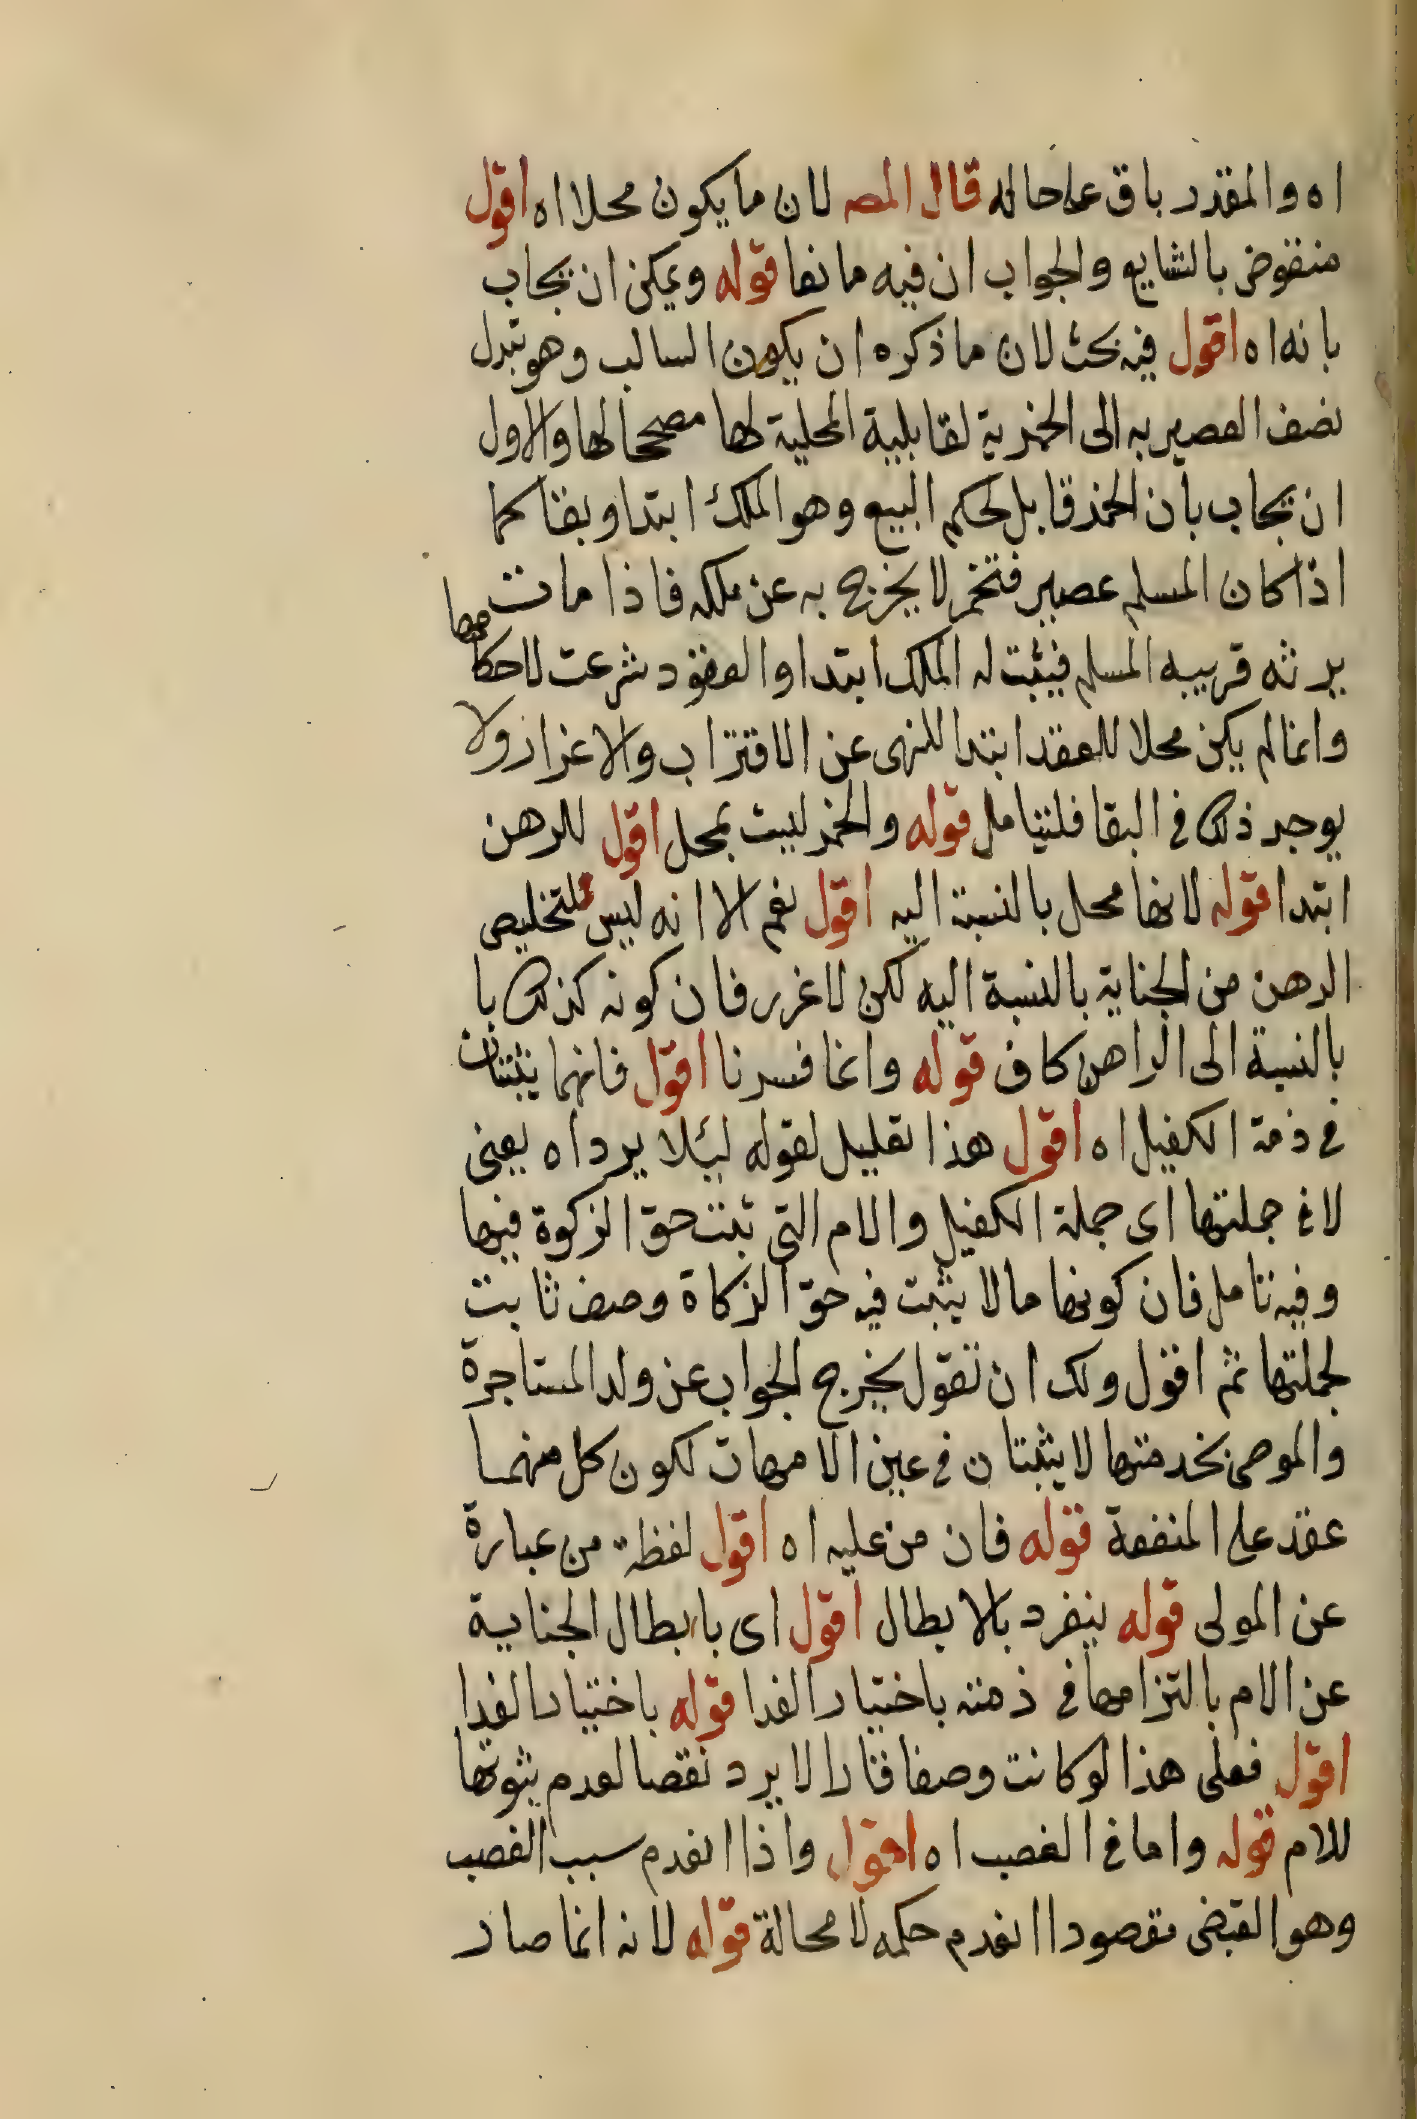 اه والمقدر باق على حاله قال المصـ لان ما يكون محلا اه اقول
منقوض بالشايع والجواب ان فيه مانعا قوله ويمكن ان يجاب
بانه اه اقول فيه بحث لان ما ذكره ان يكون السالب وهو تبدل
نصف العصير به الى الخمرية لقابلية المحلية لها مصححا لها والاول
ان يجاب بان الخمر قابل لحكم البيع وهو الملك ابتدا وبقا كما
اذا كان المسلم عصير فتخمر لا يخرج به عن ملكه فاذا مات
يرثه قريبه المسلم فيثبت له الملك ابتدا والعقود شرعت لاحكامها
وانما لم يكن محلا للعقد ابتدا للنهى عن الاقتراب والاعزاز ولا
يوجد ذلك في البقا فليتامل قوله والخمر ليست بمحل اقول للرهن
ابتدا قوله لانها محل بالنسبة اليه اقول نعم الا انه ليس للتخليص
الرهن من الجناية بالنسبة اليه لكن لا غرر فان كونه كذلك با
بالنسبة الى الراهن كاف قوله وانما فسرنا اقول فانهما يثبتان
في ذمة الكفيل اه اقول هذا تعليل لقوله لئلا يرد اه يعنى
لا في جملتها اى جملة الكفيل والام التي ثبت حق الزكوة فيها
وفيه تامل فان كونها مالا يثبت فيه حق الزكاة وصف ثابت
لجملتها ثم اقول ولك ان تقول يخرج الجواب عن ولد المستاجرة
والموصى بخدمتها لا يثبتان في عين الامهات لكون كل منهما
عقد على المنفعة قوله فان من عليه اه اقول لفظة من عبارة
عن المولى قوله ينفرد بالابطال اقول اى بابطال الجناية
عن الام بالتزامها في ذمته باختيار الفدا قوله باختيار الفدا
اقول فعلى هذا لو كانت وصفا قارا لا يرد نقصا لعدم ثبوتها
للام قوله واما في الغصب اه اقول واذا انعدم سبب الغصب
وهو القبض مقصودا انعدم حكمه لا محالة قوله لانه انما صار